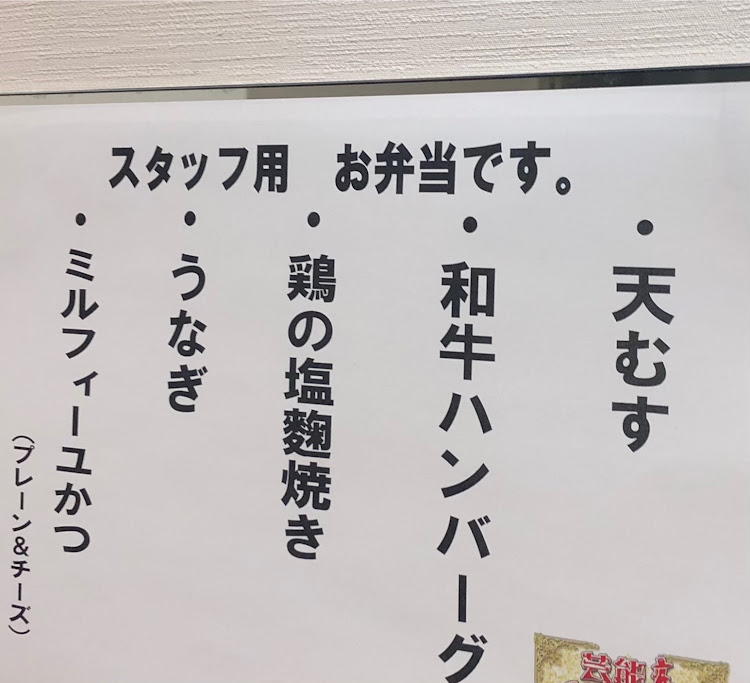 スタッフ用　お弁当です。
・天むす
・和牛ハンバーグ
・鶏の塩麴焼き
・うなぎ
・ミルフィーユかつ
（プレーン&チーズ）
芸能